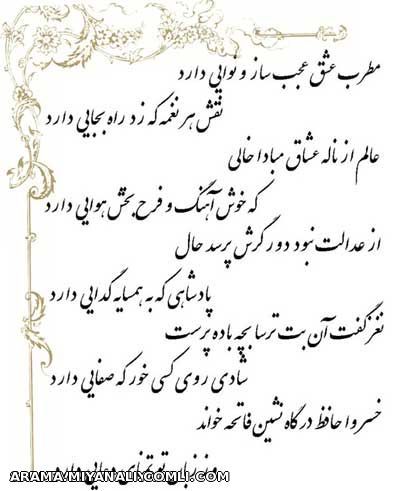 مطرب عشق عجب ساز و نوایی دارد
نقش هر نغمه که زد راه بجایی دارد
عالم از ناله عشاق مبادا خالی
که خوش آهنگ و فرح بخش هوایی دارد
از عدالت نبود دور گرش پرسد حال
پادشاهی که به همسایه گدایی دارد
نغز گفت آن بت ترسا بچه باده پرست
شادی روی کسی خور که صفایی دارد
خسروا حافظ درگاه نشین فاتحه خواند
وز زبان تو تمنای دعایی دارد
ARAMA/MIYANALI.COMLI.COM